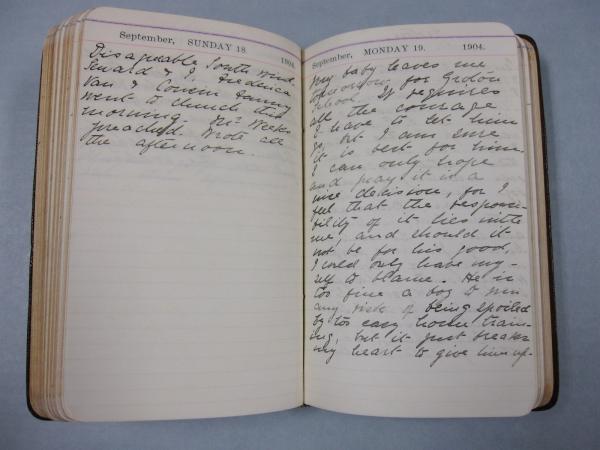 September, SUNDAY 18. 1904.
Disagreeable South wind.
& I, Frederica
Van & Cousin Fanny
went to church this
morning. Mr Weeks
preached. Wrote all
the afternoon.
September, MONDAY 19. 1904.
My baby leaves me
tomorrow for Groton
School. It requires
all the courage
I have to let him
go, but I am sure
it is best for him.
I can only hope
and pray it is a
wise decision, for I
feel that the responsi-
bility of it lies with
me, and should it
not be for his good,
I could only have my-
self to blame. He is
too fine a boy to run
any risk of being spoiled
by too easy home train-
ing, but it just breaks
my heart to give him up.